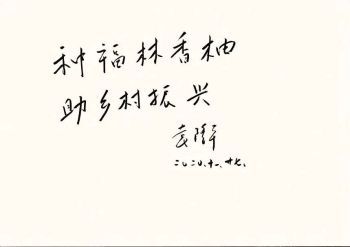 种福林香柚
助乡村振兴
袁隆平
二〇二〇.十一.廿七.